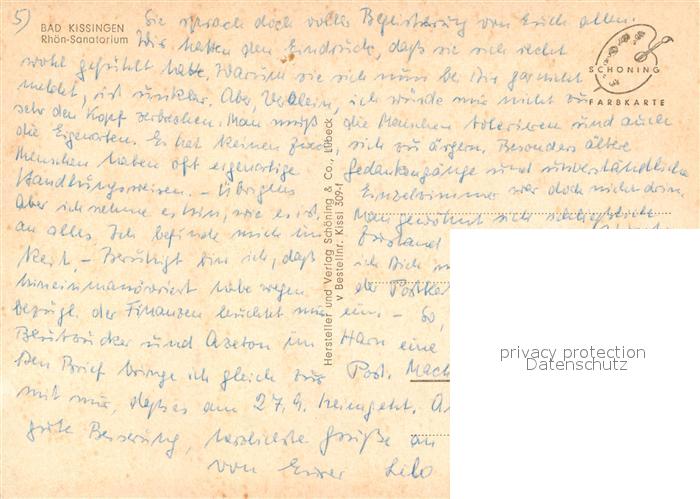 5)
BAD KISSINGEN
Rhön-Sanatorium
SCHÖNING
FARBKARTE
Sie sprach doch voller Begeisterung von Euch allen.
Wir hatten den Eindruck, daß sie sich recht
wohl gefühlt hatte, Warum sie sich nun bei Dir gar nicht
meldet, ist unklar. Aber, ich würde mir nicht zu
sehr den Kopf zerbrechen. Man muß die Menschen tolerieren und auch
die Eigenarten. Es hat keinen Zweck, sich zu ärgern. Besonders ältere
Menschen haben oft eigenartige Gedankengänge und unverständliche
Handlungsweisen. - Übrigens Einzelzimmer war doch nicht drin.
Aber ich nehme es hin, wie es ist. Man gewöhnt sich schließlich
an alles. Ich befinde mich im
keit. - Beruhigt bin ich, daß ich Dich
hineinmanövriert habe wegen der
bezügl. der Finanzen leuchtet mir ein. - So,
Blutzucker und Azeton im Harn eine
Den Brief bringe ich gleich zur Post. Mach
mit mir, daß es am 27.9. heimgeht.
gute Besserung, herzlichste Grüße an
von Eurer Lilo
Hersteller und Verlag Schöning & Co., Lübeck
v Bestellnr. Kissi 309-f
privacy protection
Datenschutz